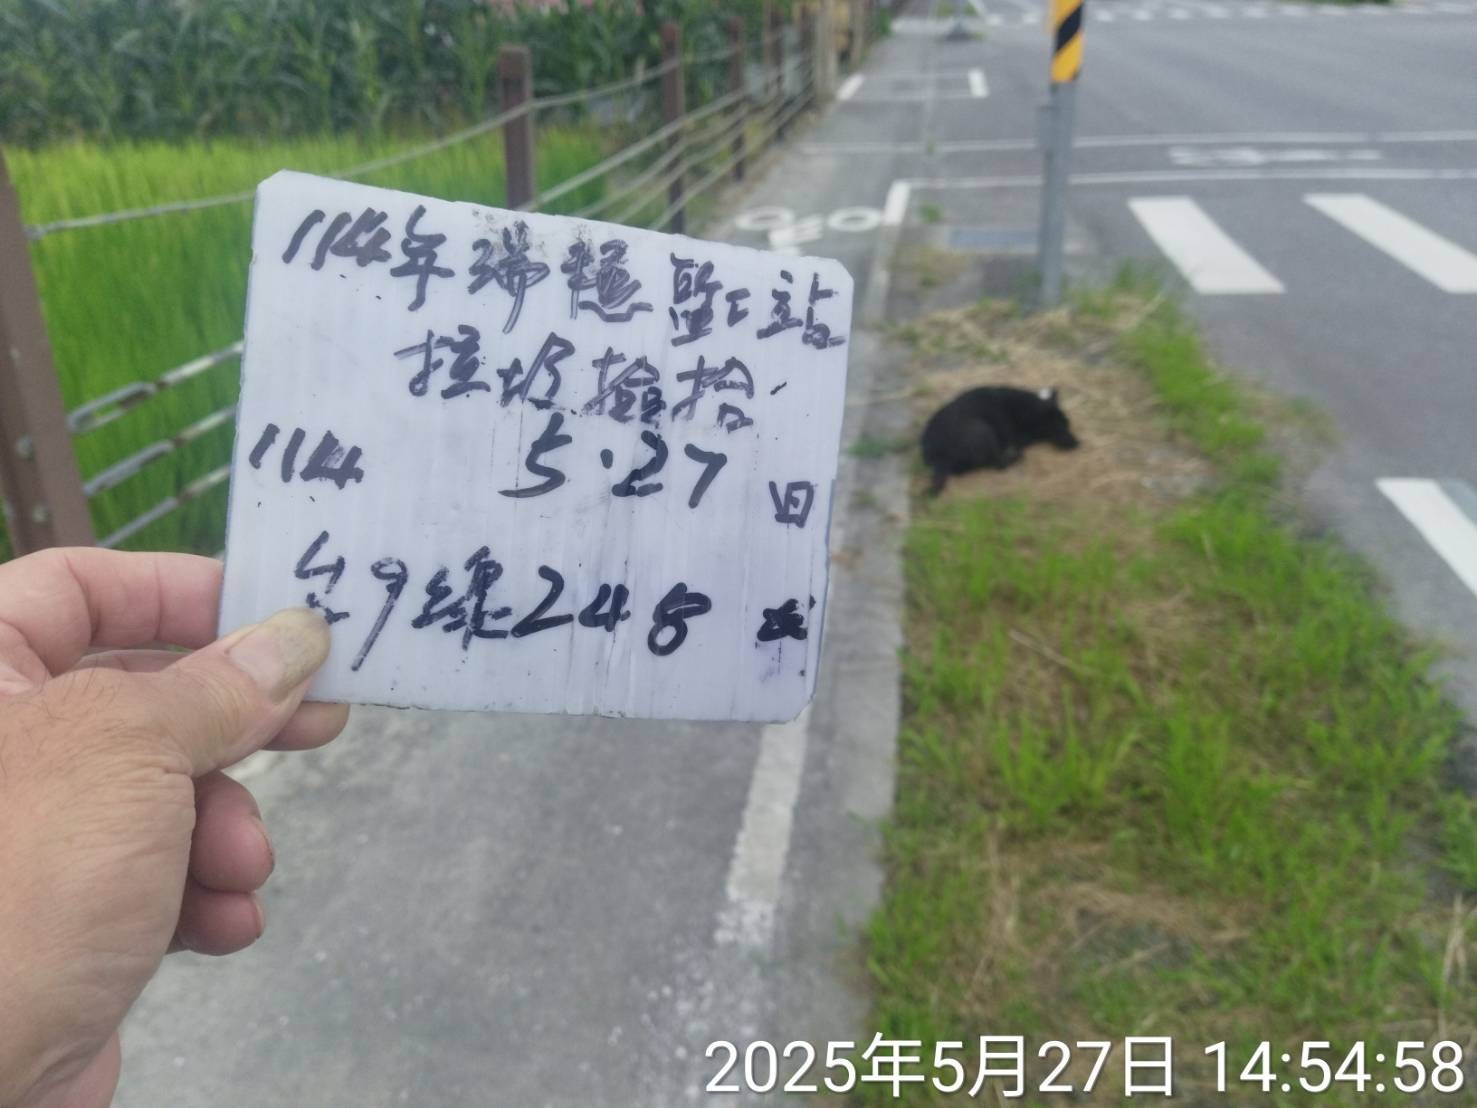 114年瑞穗監工站
垃圾撿拾
114 5.27日
台9線248
2025年5月27日 14:54:58